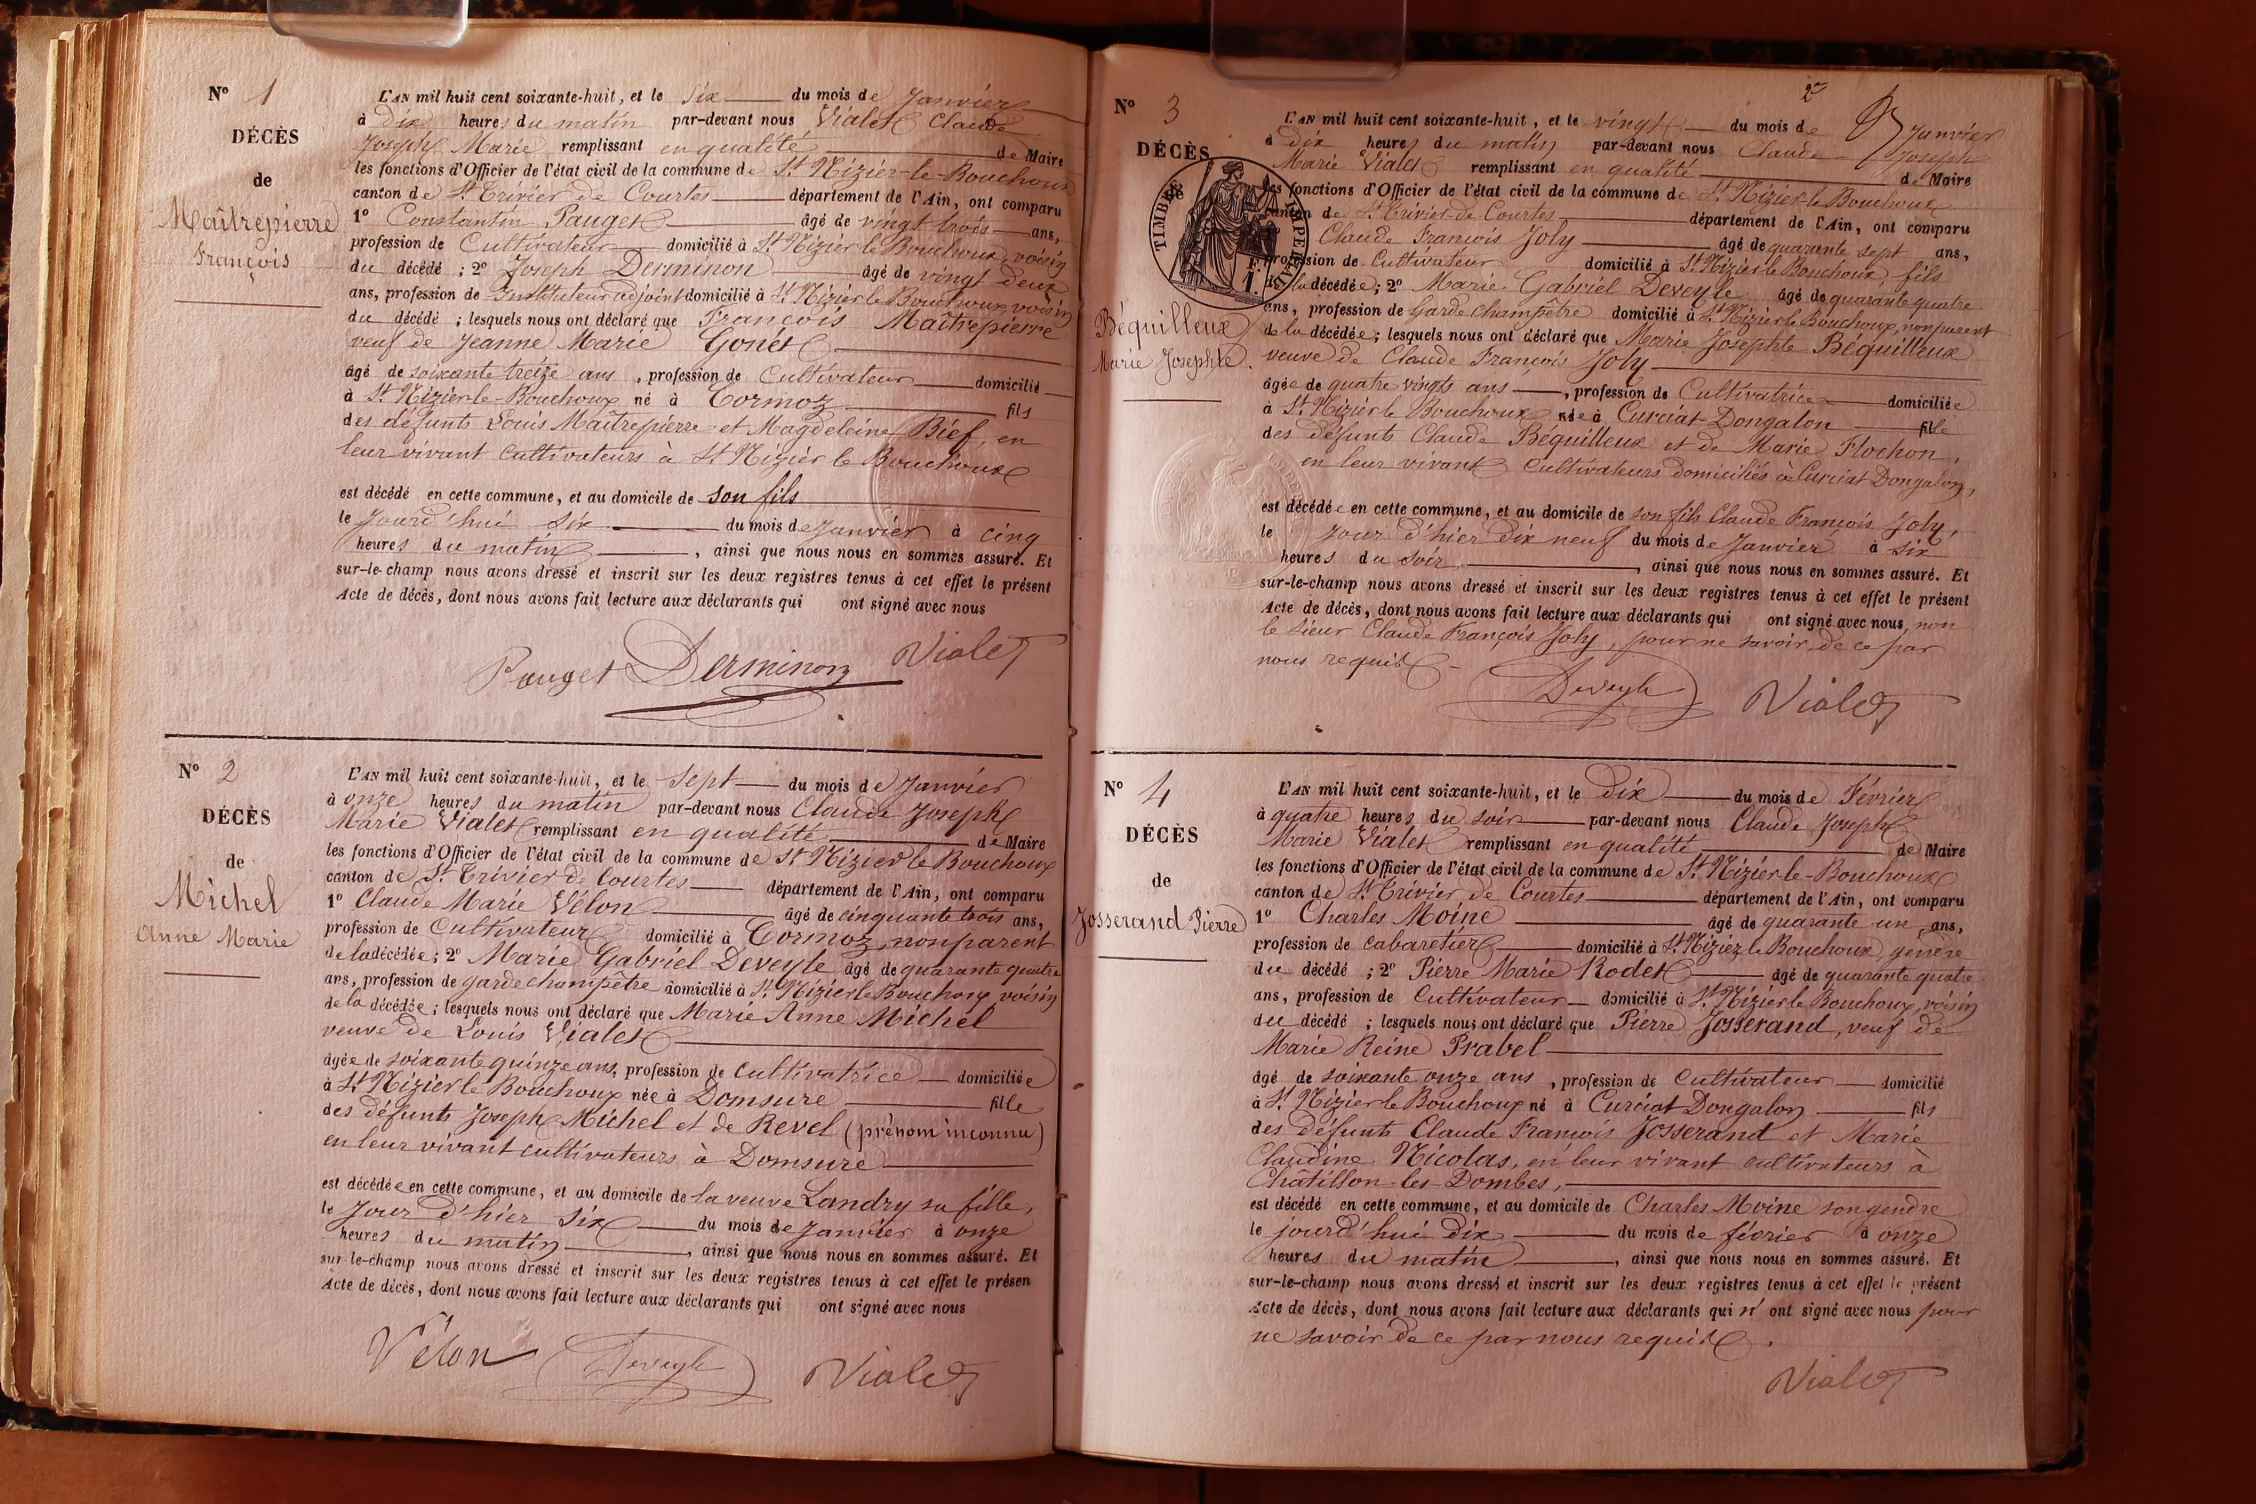 N° 1
DÉCÈS
de
Maîtrepierre
François
L'AN mil huit cent soixante-huit, et le Six du mois de Janvier
à Dix heures du matin par-devant nous Vialet Claude
Joseph Marie remplissant en qualité de Maire
les fonctions d'Officier de l'état civil de la commune de St Nizier-le-Bouchoux
canton de St Trivier de Courtes département de l'Ain, ont comparu
1° Constantin Pauget âgé de vingt trois ans,
profession de Cultivateur domicilié à St Nizier le Bouchoux, voisin
du décédé ; 2° Joseph Derminon âgé de vingt deux
ans, profession de Instituteur adjoint domicilié à St Nizier le Bouchoux, voisin
du décédé ; lesquels nous ont déclaré que François Maîtrepierre
veuf de Jeanne Marie Gonet
âgé de soixante treize ans , profession de Cultivateur domicilié
à St Nizier-le-Bouchoux né à Cormoz fils
des défunts Louis Maîtrepierre et Magdeleine Bief, en
leur vivant cultivateurs à St Nizier le Bouchoux
est décédé en cette commune, et au domicile de son fils
le Jourd'hui six du mois de Janvier à cinq
heures du matin , ainsi que nous nous en sommes assuré. Et
sur-le-champ nous avons dressé et inscrit sur les deux registres tenus à cet effet le présent
Acte de décès, dont nous avons fait lecture aux déclarants qui ont signé avec nous
Pauget Derminon Vialet
N° 2
DÉCÈS
de
Michel
Anne Marie
L'AN mil huit cent soixante-huit, et le Sept du mois de Janvier
à onze heures du matin par-devant nous Claude Joseph
Marie Vialet remplissant en qualité de Maire
les fonctions d'Officier de l'état civil de la commune de St Nizier le Bouchoux
canton de St Trivier de Courtes département de l'Ain, ont comparu
1° Claude Marie Vélon âgé de cinquante trois ans,
profession de Cultivateur domicilié à Cormoz, non parent
de la décédée; 2° Marie Gabriel Deveyle âgé de quarante quatre
ans, profession de garde champêtre domicilié à St Nizier le Bouchoux, voisin
de la décédée; lesquels nous ont déclaré que Marie Anne Michel
veuve de Louis Vialet
âgée de soixante quinze ans, profession de cultivatrice domiciliée
à St Nizier le Bouchoux née à Domsure fille
des défunts Joseph Michel et de Revel (prénom inconnu)
en leur vivant cultivateurs à Domsure
est décédée en cette commune, et au domicile de la veuve Landry sa fille,
le Jour d'hier Six du mois de Janvier à onze
heures du matin , ainsi que nous nous en sommes assuré. Et
sur-le-champ nous avons dressé et inscrit sur les deux registres tenus à cet effet le présen
Acte de décès, dont nous avons fait lecture aux déclarants qui ont signé avec nous
Vélon Deveyle Vialet
2
N° 3
DÉCÈS
TIMBRE IMPERIAL
Béquilleux
Marie Josephte.
L'AN mil huit cent soixante-huit, et le vingt du mois de Janvier
à Dix heures du matin par-devant nous Claude Joseph
Marie Vialet remplissant en qualité de Maire
les fonctions d'Officier de l'état civil de la commune de St Nizier-le Bouchoux
canton de St Trivier-de Courtes département de l'Ain, ont comparu
Claude François Joly âgé de quarante sept ans,
profession de Cultivateur domicilié à St Nizier le Bouchoux, fils
de la décédée; 2° Marie-Gabriel Deveyle âgé de quarante quatre
ans, profession de Garde champêtre domicilié à St Nizier le Bouchoux, non parent
de la décédée; lesquels nous ont déclaré que Marie Josephte Béquilleux
veuve de Claude François Joly
âgée de quatre vingts ans , profession de Cultivatrice domiciliée
à St Nizier le Bouchoux née à Curciat Dongalon fille
des défunts Claude Béquilleux et de Marie Flochon,
en leur vivant cultivateurs domiciliés à Curciat Dongalon,
est décédée en cette commune, et au domicile de son fils Claude François Joly,
le Jour d'hier Dix neuf du mois de Janvier à six
heures du soir , ainsi que nous nous en sommes assuré. Et
sur-le-champ nous avons dressé et inscrit sur les deux registres tenus à cet effet le présent
Acte de décès, dont nous avons fait lecture aux déclarants qui ont signé avec nous, non
le Sieur Claude François Joly, pour ne savoir de ce par
nous requis
Deveyle Vialet
N° 4
DÉCÈS
de
Josserand Pierre
L'AN mil huit cent soixante-huit, et le Dix du mois de Février
à quatre heures du soir par-devant nous Claude Joseph
Marie Vialet remplissant en qualité de Maire
les fonctions d'Officier de l'état civil de la commune de St Nizier-le-Bouchoux
canton de St Trivier de Courtes département de l'Ain, ont comparu
1° Charles Moine âgé de quarante un ans,
profession de cabaretier domicilié à St Nizier le Bouchoux, gendre
du décédé ; 2° Pierre Marie Rodet âgé de quarante quatre
ans, profession de Cultivateur domicilié à St Nizier le Bouchoux, voisin
du décédé ; lesquels nous ont déclaré que Pierre Josserand, veuf de
Marie Reine Prabel
âgé de soixante onze ans , profession de Cultivateur domicilié
à St Nizier le Bouchoux né à Curciat Dongalon fils
des défunts Claude François Josserand et Marie
Claudine Nicolas, en leur vivant cultivateurs à
Châtillon-les-Dombes,
est décédé en cette commune, et au domicile de Charles Moine son gendre
le jourd'hui Dix du mois de février à onze
heures du matin , ainsi que nous nous en sommes assuré. Et
sur-le-champ nous avons dressé et inscrit sur les deux registres tenus à cet effet le présent
Acte de décès, dont nous avons fait lecture aux déclarants qui n'ont signé avec nous pour
ne savoir de ce par nous requis.
Vialet